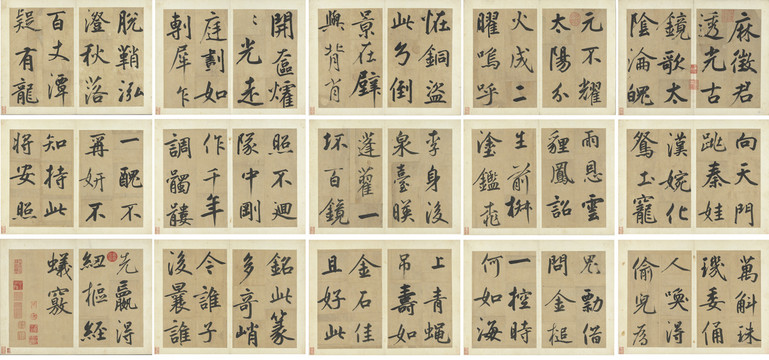 麻徵君
透光古
鏡歌太
陰淪魄
元不耀
太陽分
火成二
曜嗚呼
怪銅盜
此乃倒
景在壁
與背肖
開奩燿
〻光走
庭劃如
剸犀乍
脫鞘泓
澄秋落
百丈潭
疑有龍
向天門
跳秦娃
漢婉化
鴛土寵
雨恩雲
狸鳳詔
生前
塗鑑
李身後
泉臺暎
蓬藋一
坏百鏡
照不迴
隊中剛
作千年
調髑髏
一醜不
再妍不
知持此
將安照
萬斛珠
璣委俑
人喚得
偷兒為
鬼剽借
問金槌
一控時
何如海
上青蠅
吊壽如
金石佳
且好此
銘此篆
多奇峭
令誰子
後曩誰
先贏得
紐樞經
蟻竅